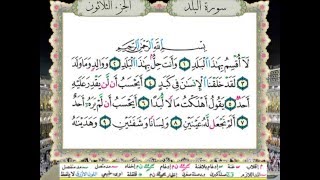 سورة البلد
الجزء الثلاثون
بِسْمِ اللَّهِ الرَّحْمَٰنِ الرَّحِيمِ
لَا أُقْسِمُ بِهَٰذَا الْبَلَدِ ١ وَأَنتَ حِلٌّ بِهَٰذَا الْبَلَدِ ٢ وَوَالِدٍ وَمَا وَلَدَ
٣ لَقَدْ خَلَقْنَا الْإِنسَانَ فِي كَبَدٍ ٤ أَيَحْسَبُ أَن لَّن يَقْدِرَ عَلَيْهِ
أَحَدٌ ٥ يَقُولُ أَهْلَكْتُ مَالًا لُّبَدًا ٦ أَيَحْسَبُ أَن لَّمْ يَرَهُ أَحَدٌ
٧ أَلَمْ نَجْعَل لَّهُ عَيْنَيْنِ ٨ وَلِسَانًا وَشَفَتَيْنِ ٩ وَهَدَيْنَاهُ